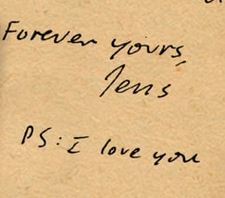 Forever yours,
Jens
PS: I love you